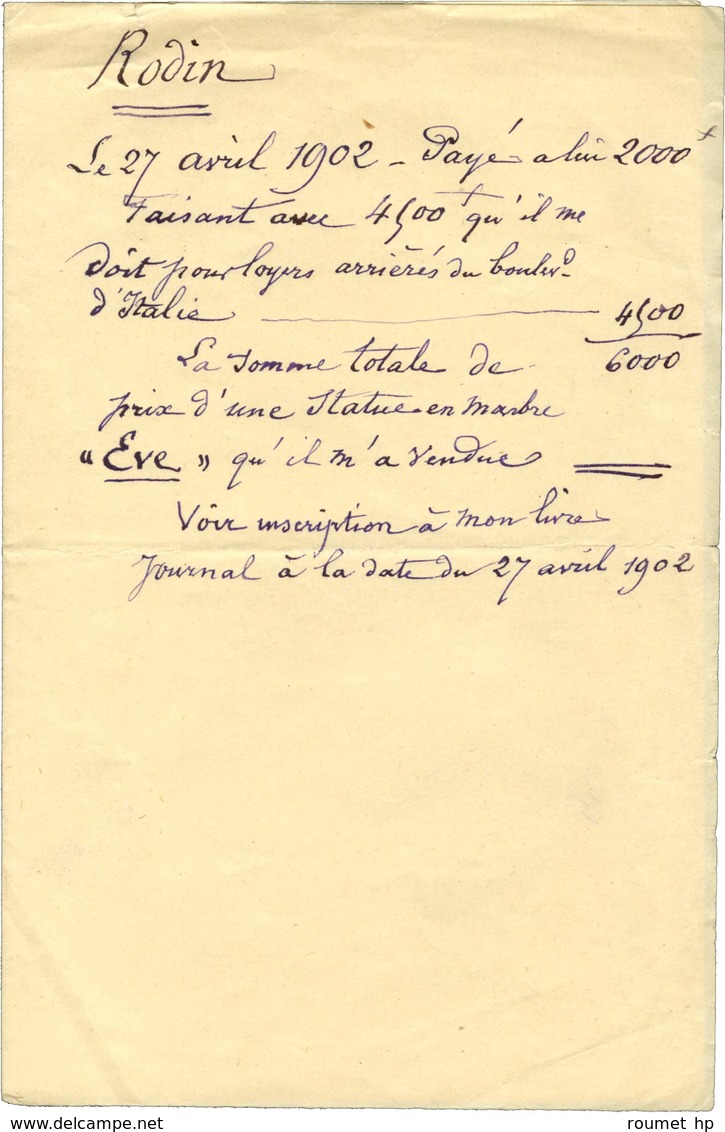 Rodin
Le 27 avril 1902 - Payé a lui 2000
Faisant avec 4500 qu'il me
doit pour loyers arriérés du boulevd
d'Italie 4500
La somme totale de 6000
prix d'une Statue en marbre
« Eve » qu'il m'a vendue
Voir inscription à mon livre
Journal à la date du 27 avril 1902
www.delcampe.net
roumet hp